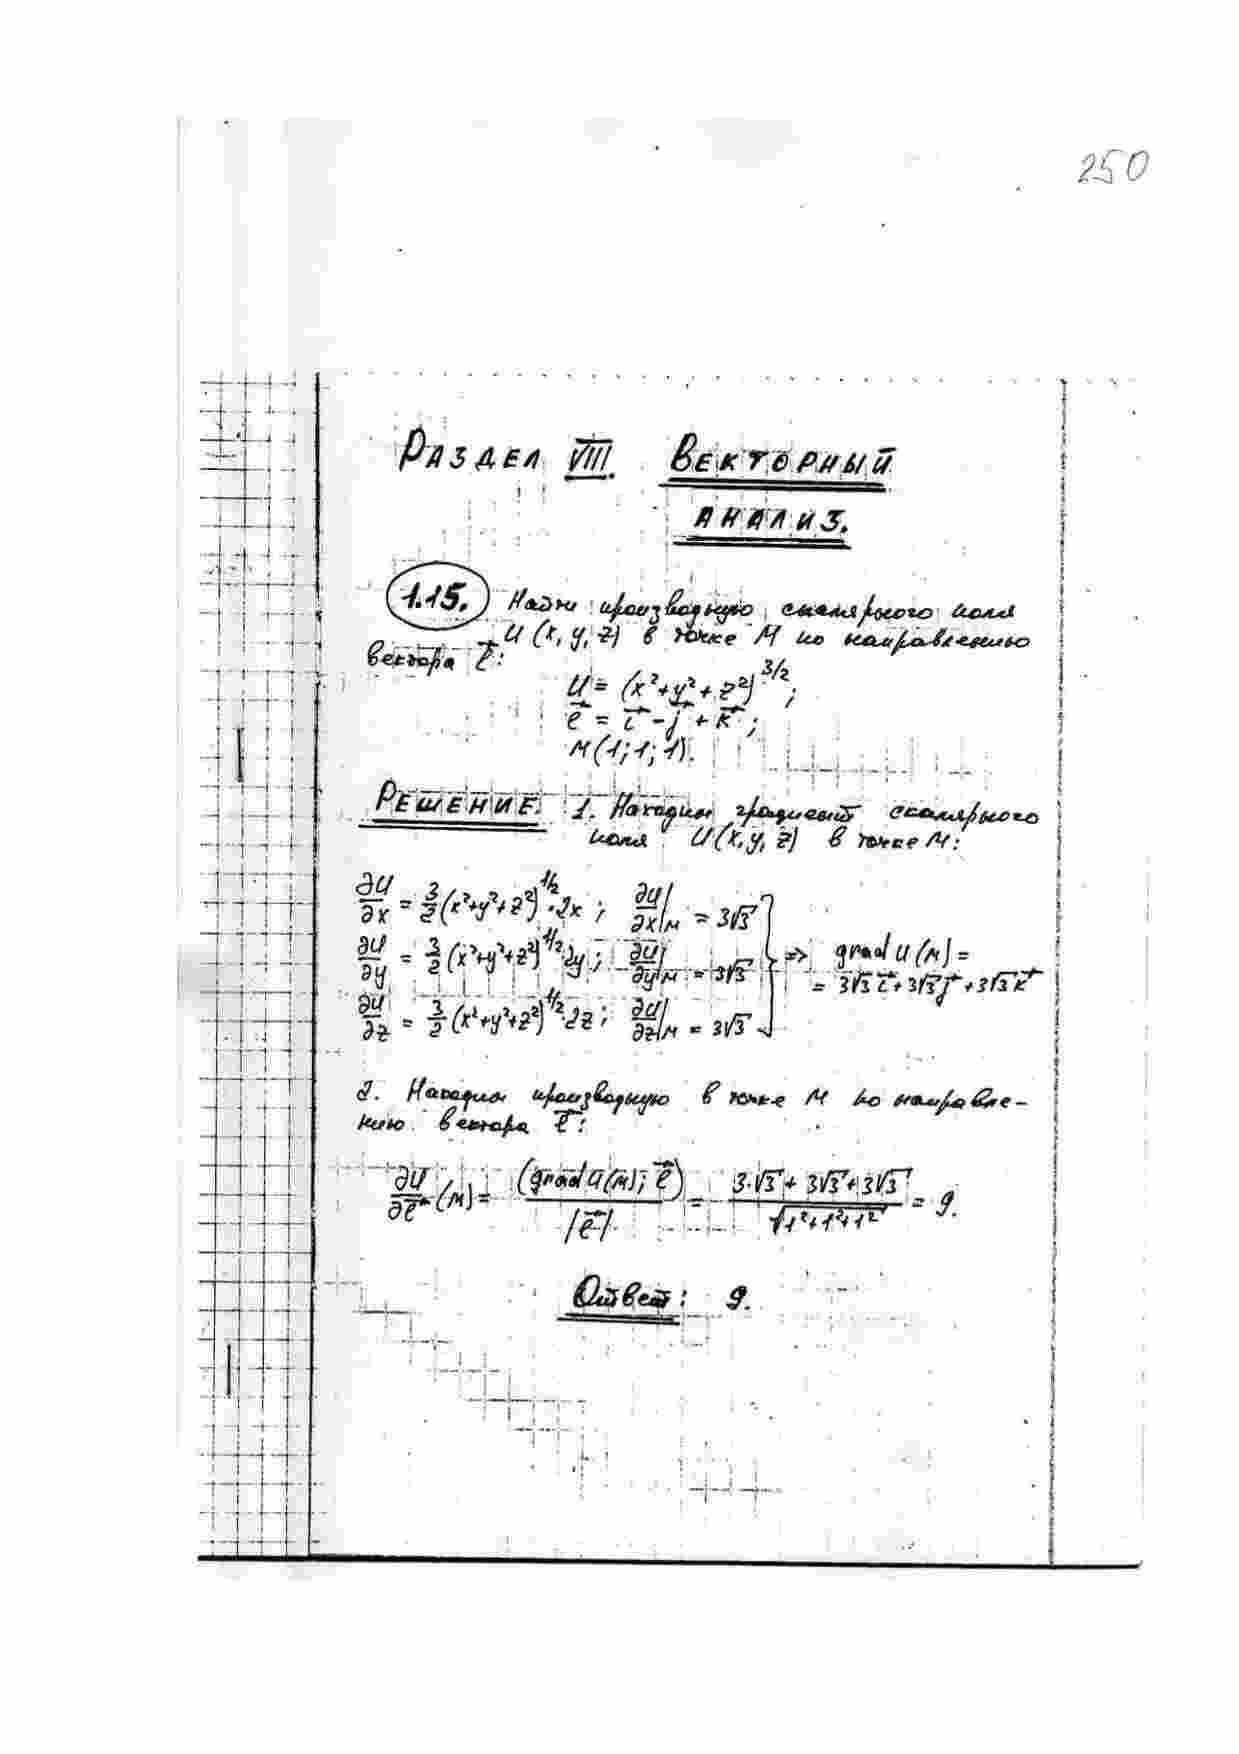 250
РАЗДЕЛ VIII. ВЕКТОРНЫЙ
АНАЛИЗ.
1.15. Найти производную скалярного поля
U(x, y, z) в точке М по направлению
вектора e⃗:
U = (x²+y²+z²)^{3/2};
e⃗ = i⃗ - j⃗ + k⃗;
М(1;1;1).
РЕШЕНИЕ. 1. Находим градиент скалярного
поля U(x,y,z) в точке М:
∂U/∂x = 3/2 (x²+y²+z²)^{1/2}·2x; ∂U/∂x|м = 3√3
∂U/∂y = 3/2 (x²+y²+z²)^{1/2}·2y; ∂U/∂y|м = 3√3 } => grad U(м) =
= 3√3 i⃗ + 3√3 j⃗ + 3√3 k⃗
∂U/∂z = 3/2 (x²+y²+z²)^{1/2}·2z; ∂U/∂z|м = 3√3
2. Находим производную в точке М по направле-
нию вектора e⃗:
∂U/∂e⃗ (м) = (grad U(м); e⃗)/|e⃗| = (3·√3 + 3√3 + 3√3)/√(1²+1²+1²) = 9.
Ответ: 9.